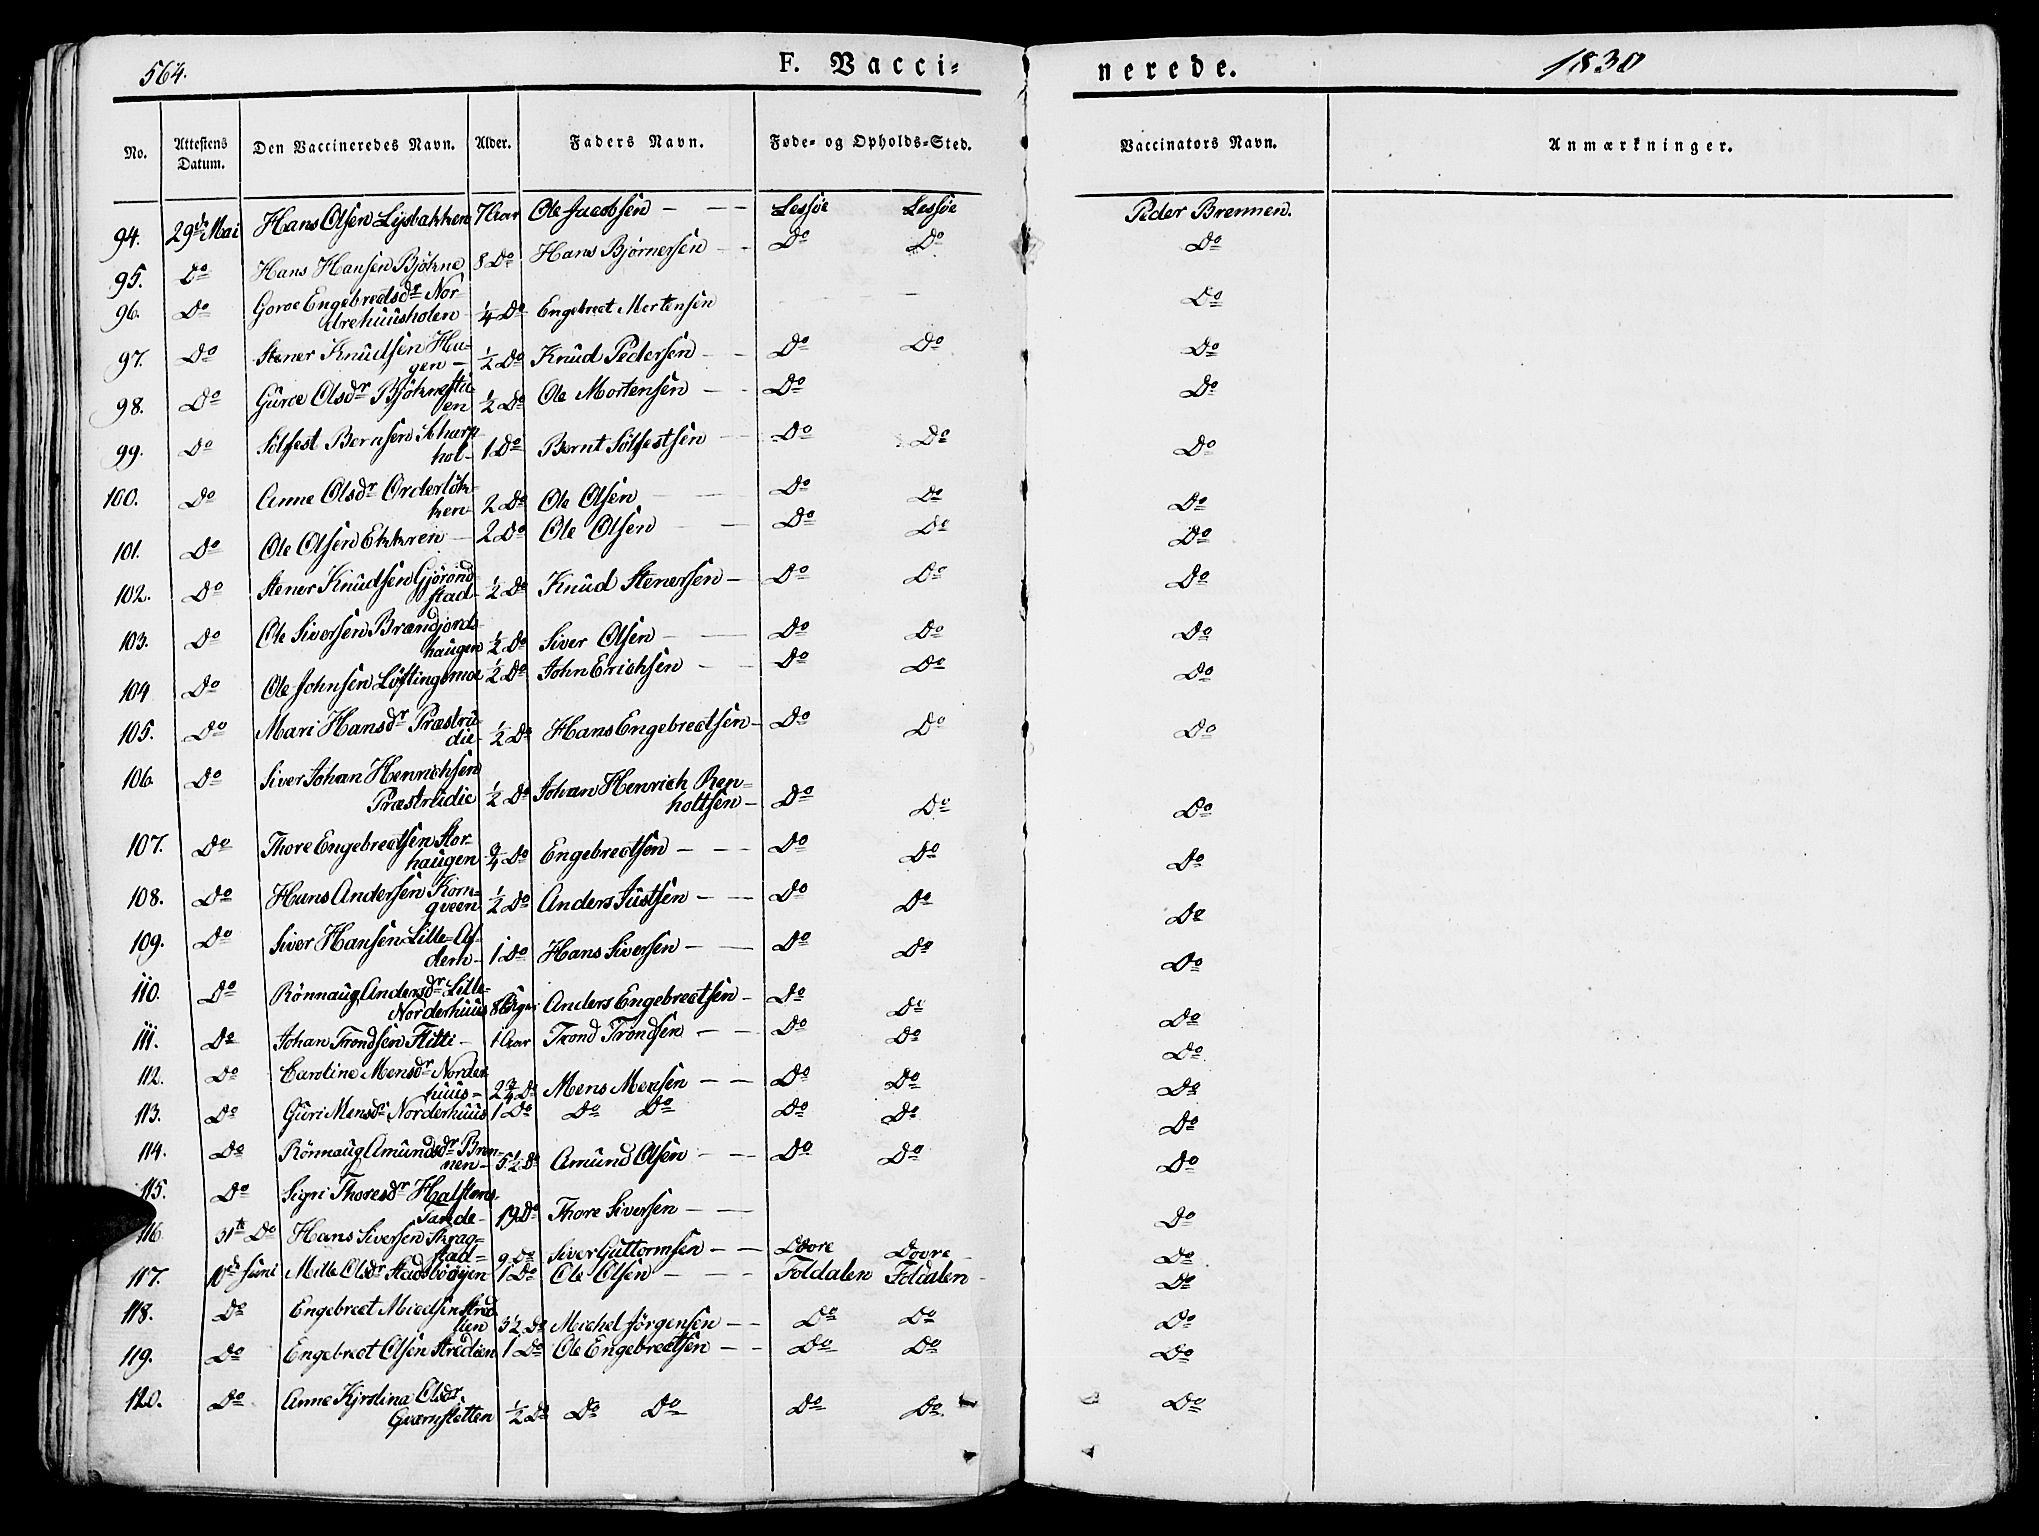 564.
F. Vacci-
nerede.
1830
No.
Attestens Datum.
Den Vaccineredes Navn.
Alder.
Faders Navn.
Føde- og Opholds-Sted.
Vaccinators Navn.
Anmærkninger.
94. 29de Mai Hans Olsen Lysbakken 7 Aar Ole Jacobsen — — — Lessøe Lessøe Peder Brennen.
95. Do Hans Hansen Bjökne 8 Do Hans Bjørnersen — - Do Do Do
96. Do Goroe Engebredsdr Nor-
drehuusholen 1/4 Do Engebreet Mortensen Do
97. Do Stener Knudsen Hau-
gen — 1/2 Do Knud Pedersen — — Do Do Do
98. Do Guroe Olsdr Bjöknestu-
en 1/2 Do Ole Mortensen — — Do Do
99. Do Solfest Bernsen Skarp-
hol- 1 Do Bernt Solfestsen — — Do Do Do
100. Do Anne Olsdr Orderlök-
ken- 2 Do Ole Olsen — — Do Do Do
101. Do Ole Olsen Ekkren — 2 Do Ole Olsen — — Do Do Do
102. Do Stener Knudsen Gjörönd-
stad- 1/2 Do Knud Stenersen — Do Do Do
103. Do Ole Siversen Brændjords-
haugen 1/2 Do Siver Olsen — — Do Do Do
104 Do Ole Johnsen Löftingsmoe 1/2 Do John Erichsen — — Do Do Do
105. Do Mari Hansdr Præstru-
die- 1/2 Do Hans Engebrectsen — Do Do Do
106. Do Siver Johan Henrichsen
Præstrudie 1/2 Do Johan Henrich Ren-
holtsen — Do Do Do
107. Do Thore Engebrectsen Stor-
haugen 3/4 Do Engebrectsen — — Do Do Do
108. Do Hans Andersen Korn-
qveen 1/2 Do Anders Justsen — — Do Do Do
109. Do Siver Hansen Lille-
1 Do Hans Siversen — — Do Do Do
110. Do Rönnaug Andersdr Lille-
Norderhuus 8 Uger Anders Engebrectsen — Do Do Do
111. Do Johan Trondsen Flitti — 1 Aar Trond Trondsen — — Do Do Do
112. Do Caroline Mensdr Norder-
huus- 2 3/4 Do Mens Mensen — — Do Do Do
113. Do Guri Mensdr Norderhuus 1 Do Do Do Do Do Do
114. Do Rönnaug Amundsdr Bren-
nen- 5 1/2 Do Amund Olsen — — Do Do Do
115. Do Sigri Thoresdr Halstens-
19 Do Thore Siversen — — Do
116. 31te Do Hans Siversen Skrag-
stad- 9 Do Siver Guttormsen — — Dovre Dovre Do
117. 10de Juni Mille Olsdr Stadsböigen 1 Do Ole Olsen — — Foldalen Foldalen Do
118. Do Engebreet Micelsen Stræd-
lien 3 1/2 Do Michel Jörgensen — — Do Do Do
119. Do Engebreet Olsen Strædlien 1 Do Ole Engebrectsen — — Do Do Do
120. Do Anne Kjrstina Olsdr.
Gværnsletten 1/2 Do Do Do Do Do Do